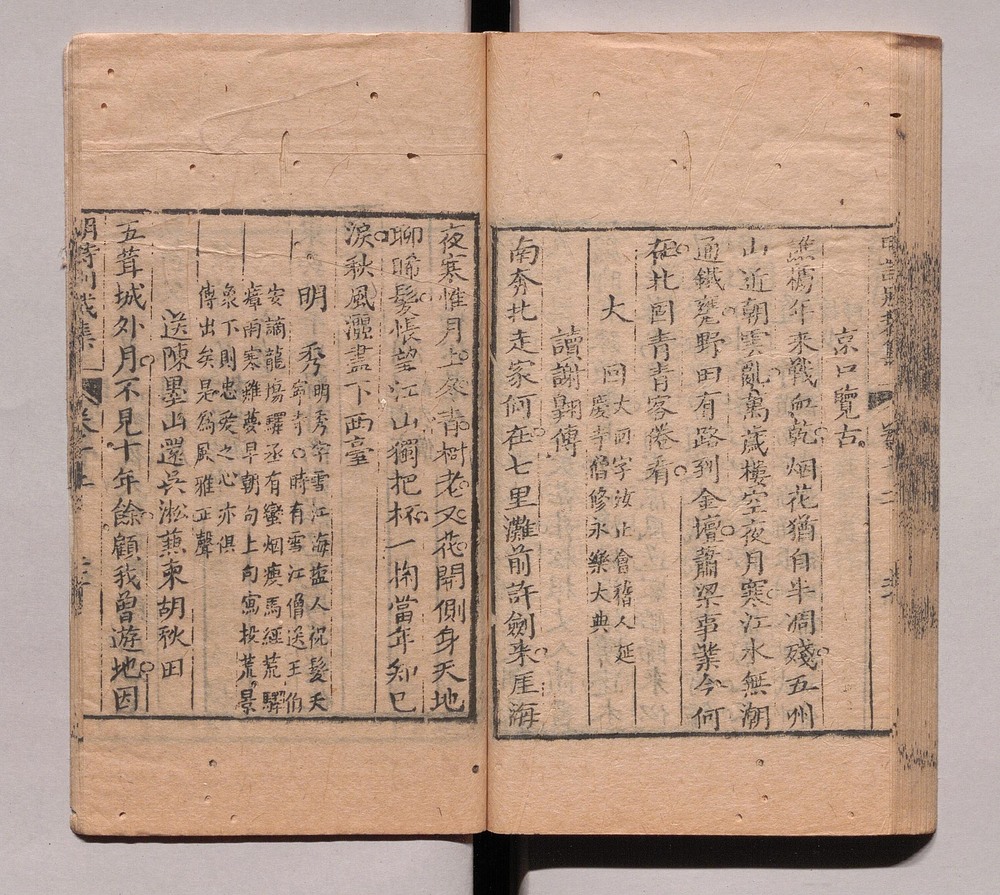 京口覽古
譙櫓年來戰血乾烟花猶自半凋殘五州
山近朝雲亂萬歲樓空夜月寒江水無潮
通鐵甕野田有路到金壇蕭梁事業今何
在北固青青客倦看
大同大同字汝止會稽人延
慶寺僧修永樂大典
讀謝翱傳
南奔北走家何在七里灘前許劍来厓海
夜寒惟月上冬青樹老又花開側身天地
聊晞髮悵望江山獨把杯一掬當年知己
淚秋風灑盡下西臺
明秀明秀字雪江海盐人祝髮天
寧寺時有雪江僧送王伯
安謫龍塲驛丞有蠻烟瘦馬經荒驛
瘴雨寒雞夢早朝句上句寓投荒景
象下則忠愛之心亦俱
傳出矣是爲風雅正聲
送陳墨山還吳淞兼柬胡秋田
五茸城外月不見十年餘顧我曾遊地因
明詩別裁集